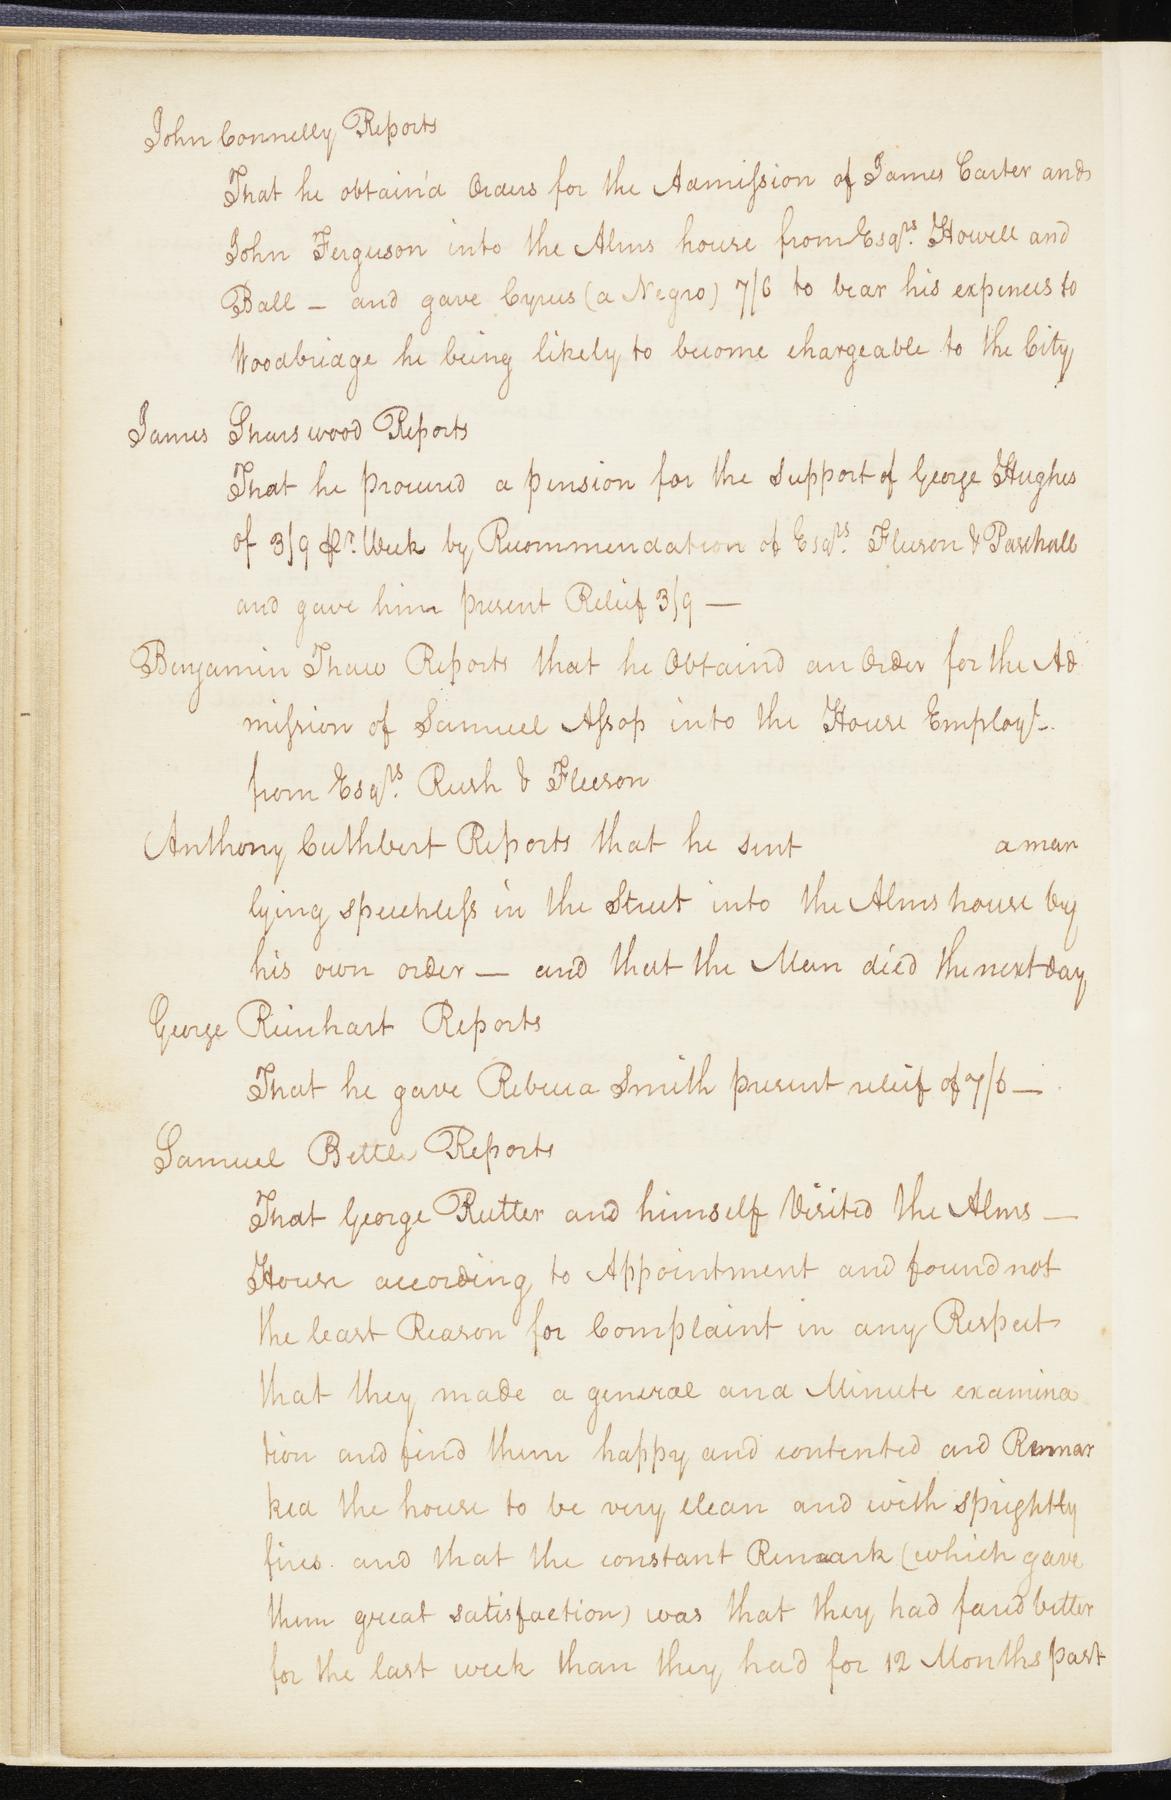 John Connelly Reports
That he obtain'd Orders for the Admission of James Carter and
John Ferguson into the Alms house from Esqrs. Howell and
Ball — and gave Cyrus (a Negro) 7/6 to bear his expences to
Woodbridge he being likely to become chargeable to the City
James Sharswood Reports
That he procured a pension for the Support of George Hughes
of 3/9 Pr. Week by Recommendation of Esqrs. Fleeson & Paschall
and gave him present Relief 3/9 —
Benjamin Thaw Reports that he Obtaind an Order for the Ad
mission of Samuel Assop into the House Employt.
from Esqrs. Rush & Fleeson
Anthony Cuthbert Reports that he sent a man
lying speechless in the Street into the Alms house by
his own order — and that the Man died the next day
George Rinhart Reports
That he gave Rebecca Smith present relief of 7/6 —
Samuel Bettle Reports
That George Rutter and himself Visited the Alms —
House according to Appointment and found not
the least Reason for Complaint in any Respect
that they made a general and Minute examina
tion and find them happy and contented and Remar
ked the house to be very clean and with sprightly
fires. and that the constant Remark (which gave
them great satisfaction) was that they had fared better
for the last week than they had for 12 Months past